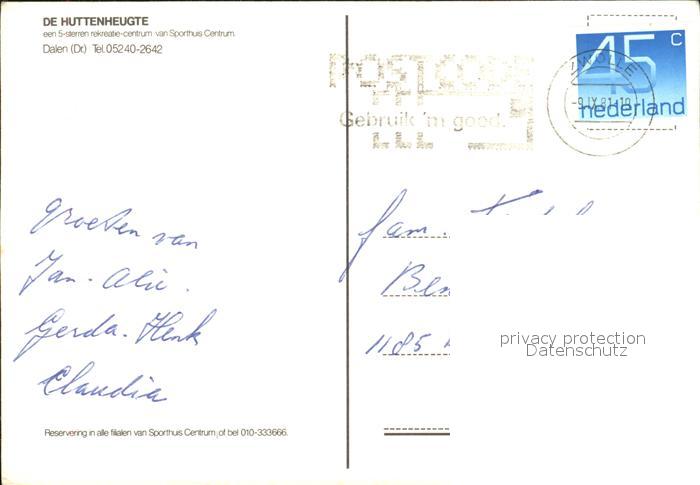 DE HUTTENHEUGTE
een 5-sterren rekreatie-centrum van Sporthuis Centrum.
Dalen (Dr.) Tel. 05240-2642
POSTCODE
Gebruik 'm goed.
45 C
ZWOLLE
-9.IX.81-19
nederland
groeten van
Jan - Alie.
Gerda - Henk
Claudia
fam.
1185
privacy protection
Datenschutz
Reservering in alle filialen van Sporthuis Centrum, of bel 010-333666.